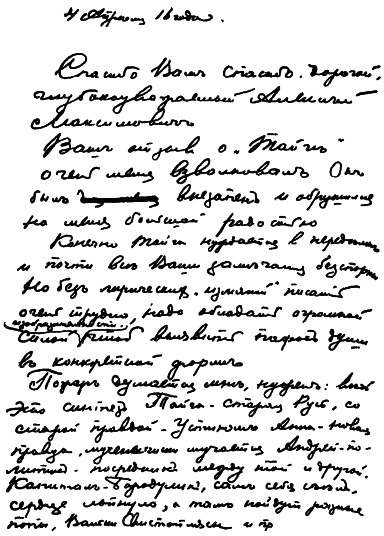 4 Апреля 16 года.
Спасибо Вамъ спасибо. Дорогой,
глубокоуважаемый Алексей
Максимовичъ
Вашъ отзывъ о "Тайгѣ"
очень меня взволновалъ Онъ
былъ внезапенъ и обрушился
на меня большой радостью
Конечно Тайга нуждается в переделке
и почти все Ваши замечания безспорны
Но безъ лирических писать
очень трудно, надо обладать огромной
изобразительности
силой чтоб выявить пафосъ души
въ конкретной формъ
Пафосъ думается мнъ, нуженъ:
это синтезъ Тайга - старая Русь, со
старой правдой - Устинъ Анна - новая
правда, мученически мучается Андрей-по-
литикъ - посредникъ между той и другой.
Капиталъ - Бородулинъ, самъ себя
сердце лопнуло, а тамъ пойдутъ разные
попы, Ваньки Свистоплясы и пр